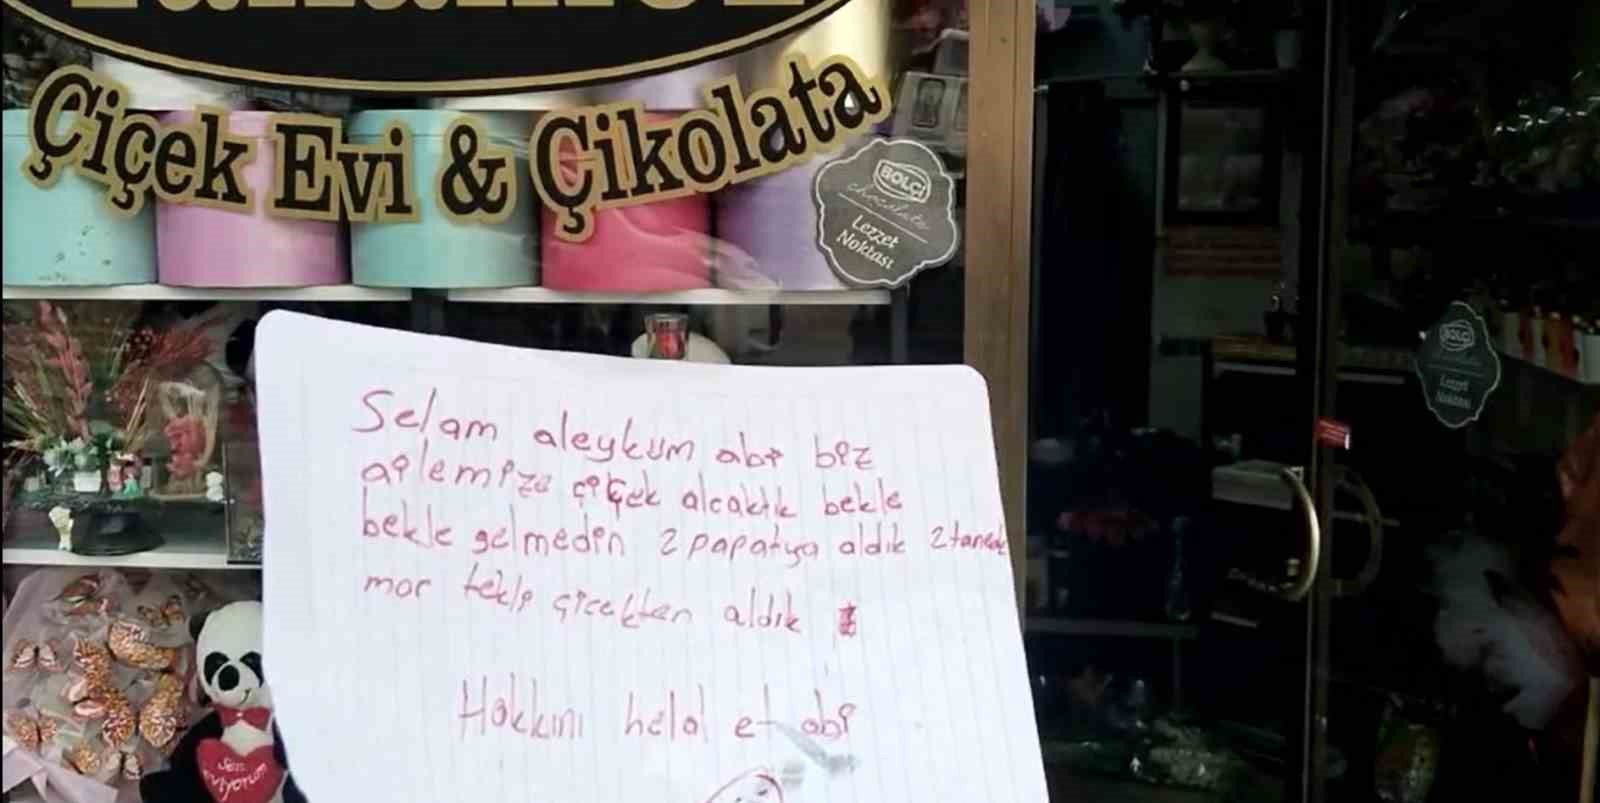 Çiçek Evi & Çikolata
BOLÇİ
chocolate
Lezzet
Noktası
Selam aleykum abi biz
ailemize çiçek alcaktık bekle
bekle gelmeden 2 papatya aldık 2 tanede
mor tekli çiçekten aldık
Hakkını helal et abi
Seni
Seviyorum
BOLÇİ
Lezzet
Noktası